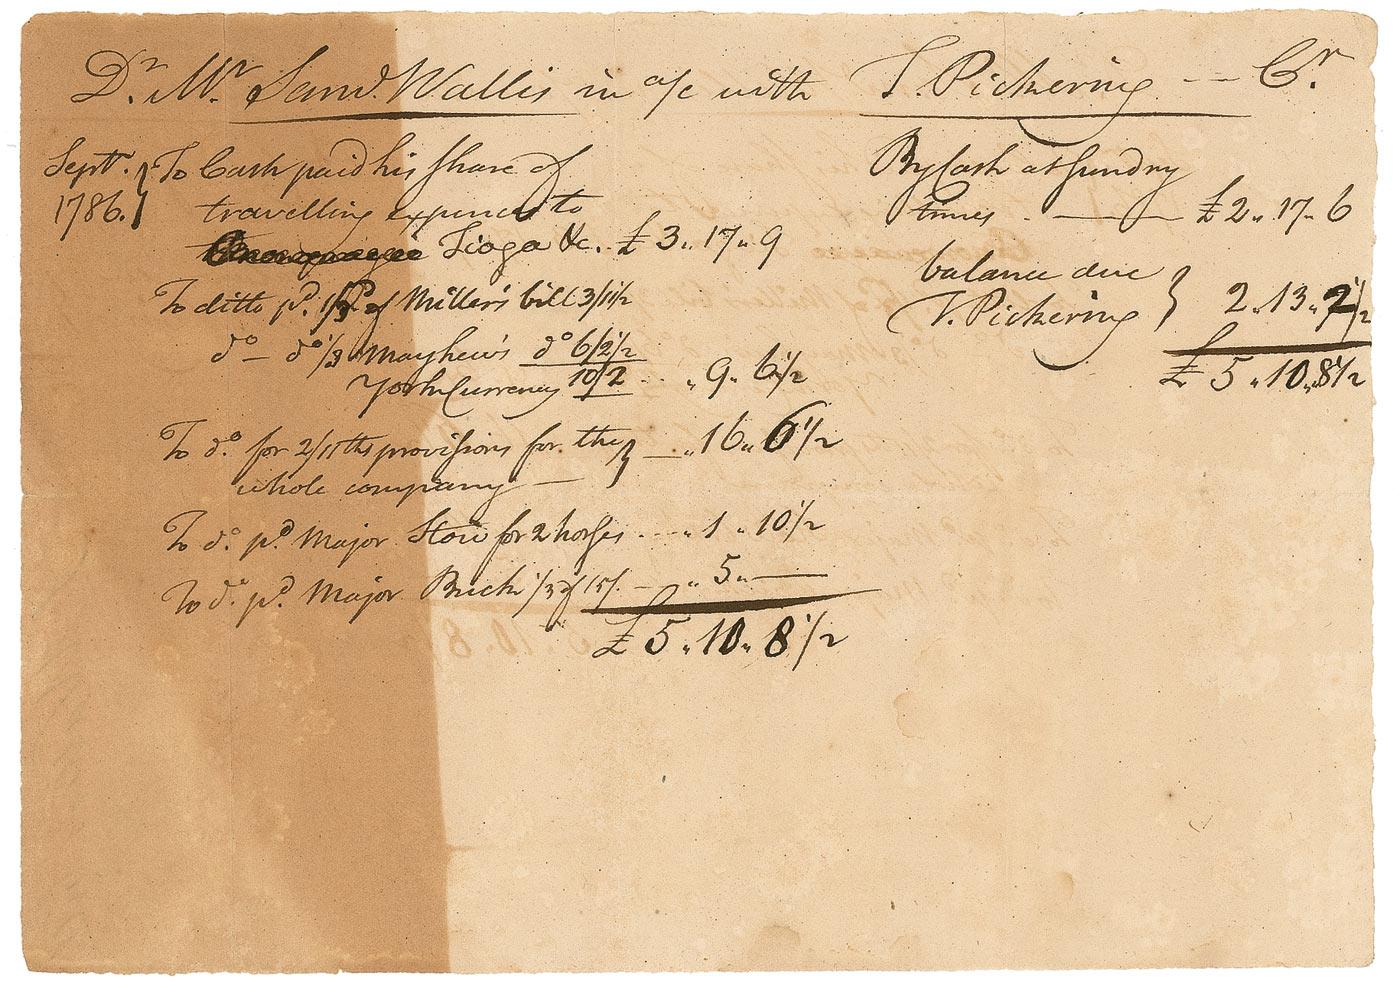 Dr. Mr. Saml. Wallis in a/c with T. Pickering — Cr.
Sept. 1786. } To Cash paid his share of
travelling expences to
Tioga &c. £3.,17.,9
To ditto pd. 1/3d. of Miller's bill 3/11½
do — do 1/3 Mayhew's do 6/2½
York Currency 10/2 .. „9.,6½
To do. for 2/11ths provisions for the }
whole company — } — „16.,6½
To do. pd. Major Stow for 2 horses .... „1.,10½
To do. pd. Major Buck 1/3 of 15/. — „5.,—
£5.,10.,8½
By Cash at sundry
times . — £2.,17.,6
balance due }
T. Pickering } 2.,13.,2½
£5.,10.,8½